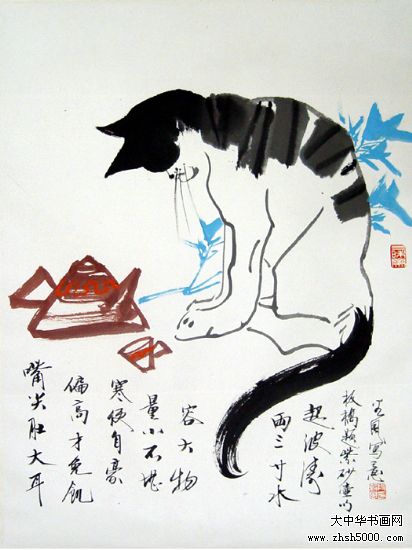 嘴尖肚大耳
偏高才免飢
寒便自豪
量小不堪
容大物
两三寸水
起波濤
板橋題紫砂壺
寫意
大中华书画网
www.zhsh5000.com